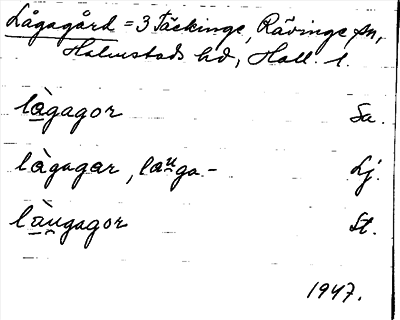 Lågagård = 3 Täckinge, Rävinge sn,
Halmstads hd, Hall. l.
là̱gagor Sa.
làgagar, lau̯ga- Lj.
là̱u̯gagor St.
1947.